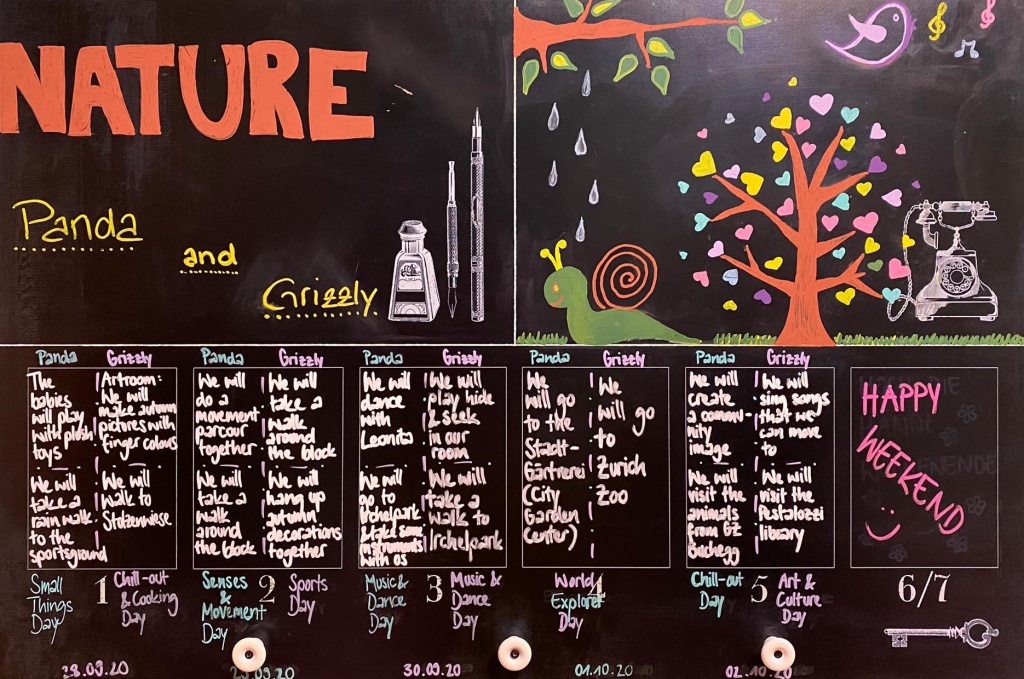 NATURE
Panda
and
Grizzly
Panda
The
babies
will play
with plush
toys
We will
take a
rain walk
to the
sportsground
Grizzly
Artroom:
We will
make autumn
pictures with
finger colours
We will
walk to
Stolzenwiese
Panda
We will
do a
movement
parcour
together
We will
take a
walk
around
the block
Grizzly
We will
take a
walk
around
the block
We will
hang up
autumn
decorations
together
Panda
We will
dance
with
Leonita
We will
go to
Irchelpark
& take some
instruments
with us
Grizzly
We will
play hide
& seek
in our
room
We will
take a
walk to
Irchelpark
Panda
We
will go
to the
Stadt-
Gärtnerei
(City
Garden
Center)
Grizzly
We
will go
to
Zurich
Zoo
Panda
We will
create
a commu-
nity
image
We will
visit the
animals
from GZ
Buchegg
Grizzly
We will
sing songs
that we
can move
to
We will
visit the
Pestalozzi
library
HAPPY
WEEKEND
Small
Things
Day
1
Chill-out
& Cooking
Day
Senses
&
Movement
Day
2
Sports
Day
Music &
Dance
Day
3
Music &
Dance
Day
World
Explorer
Day
4
Chill-out
Day
5
Art &
Culture
Day
6/7
28.09.20
29.09.20
30.09.20
01.10.20
02.10.20